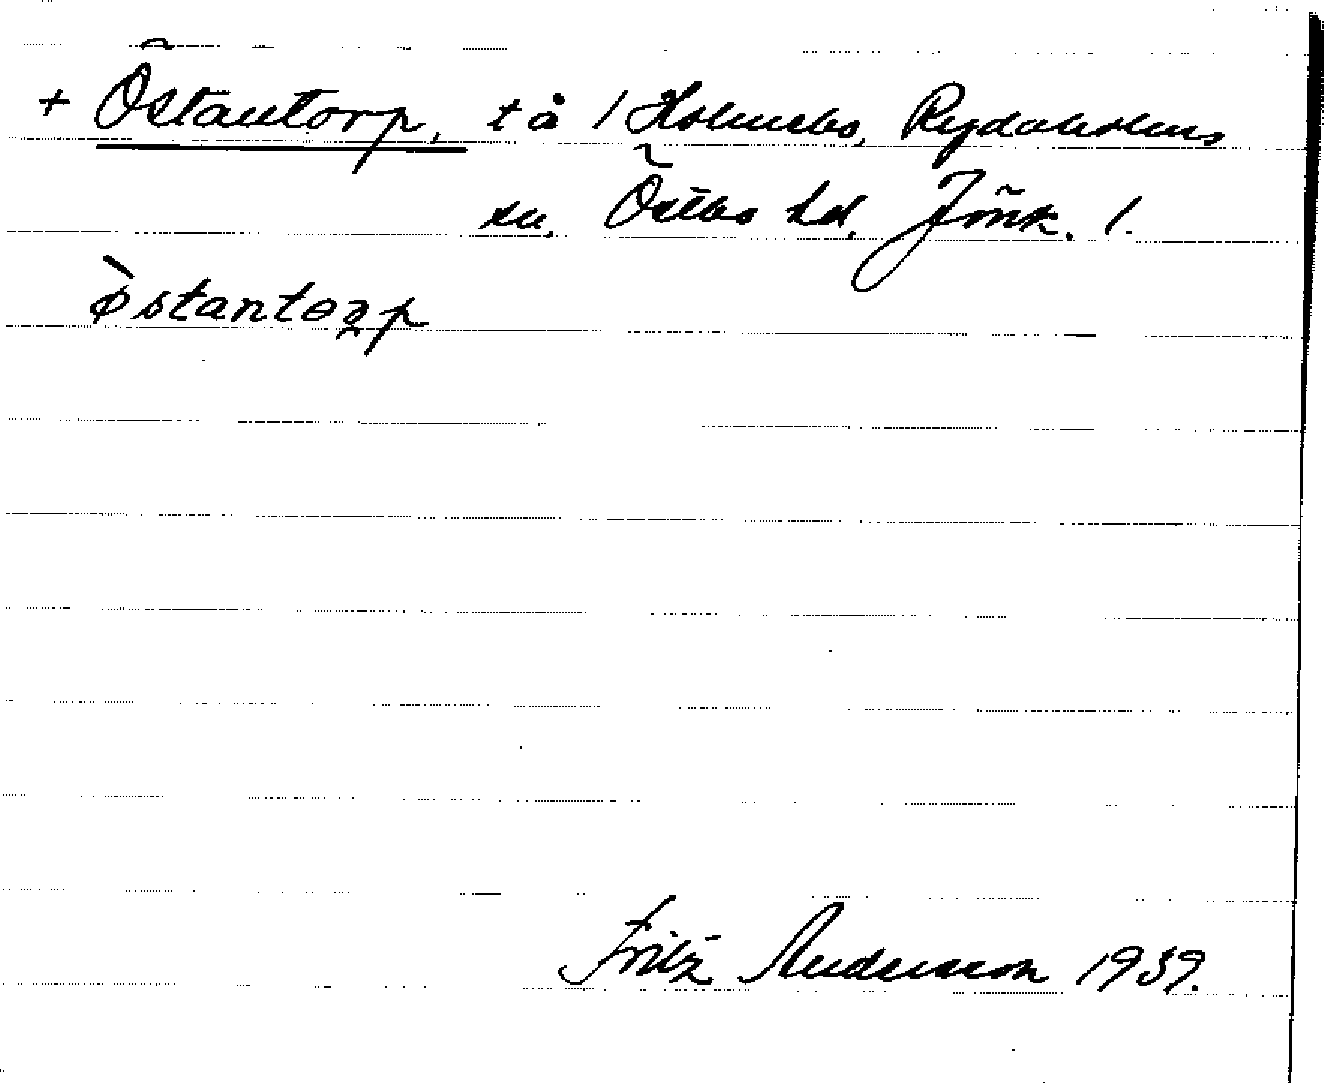 + Östantorp, tå / Holmsbo, Rydaholms
sn, Östbo hd, Jönk. l.
ø̀stantorp
Fritz Andersson 1939.